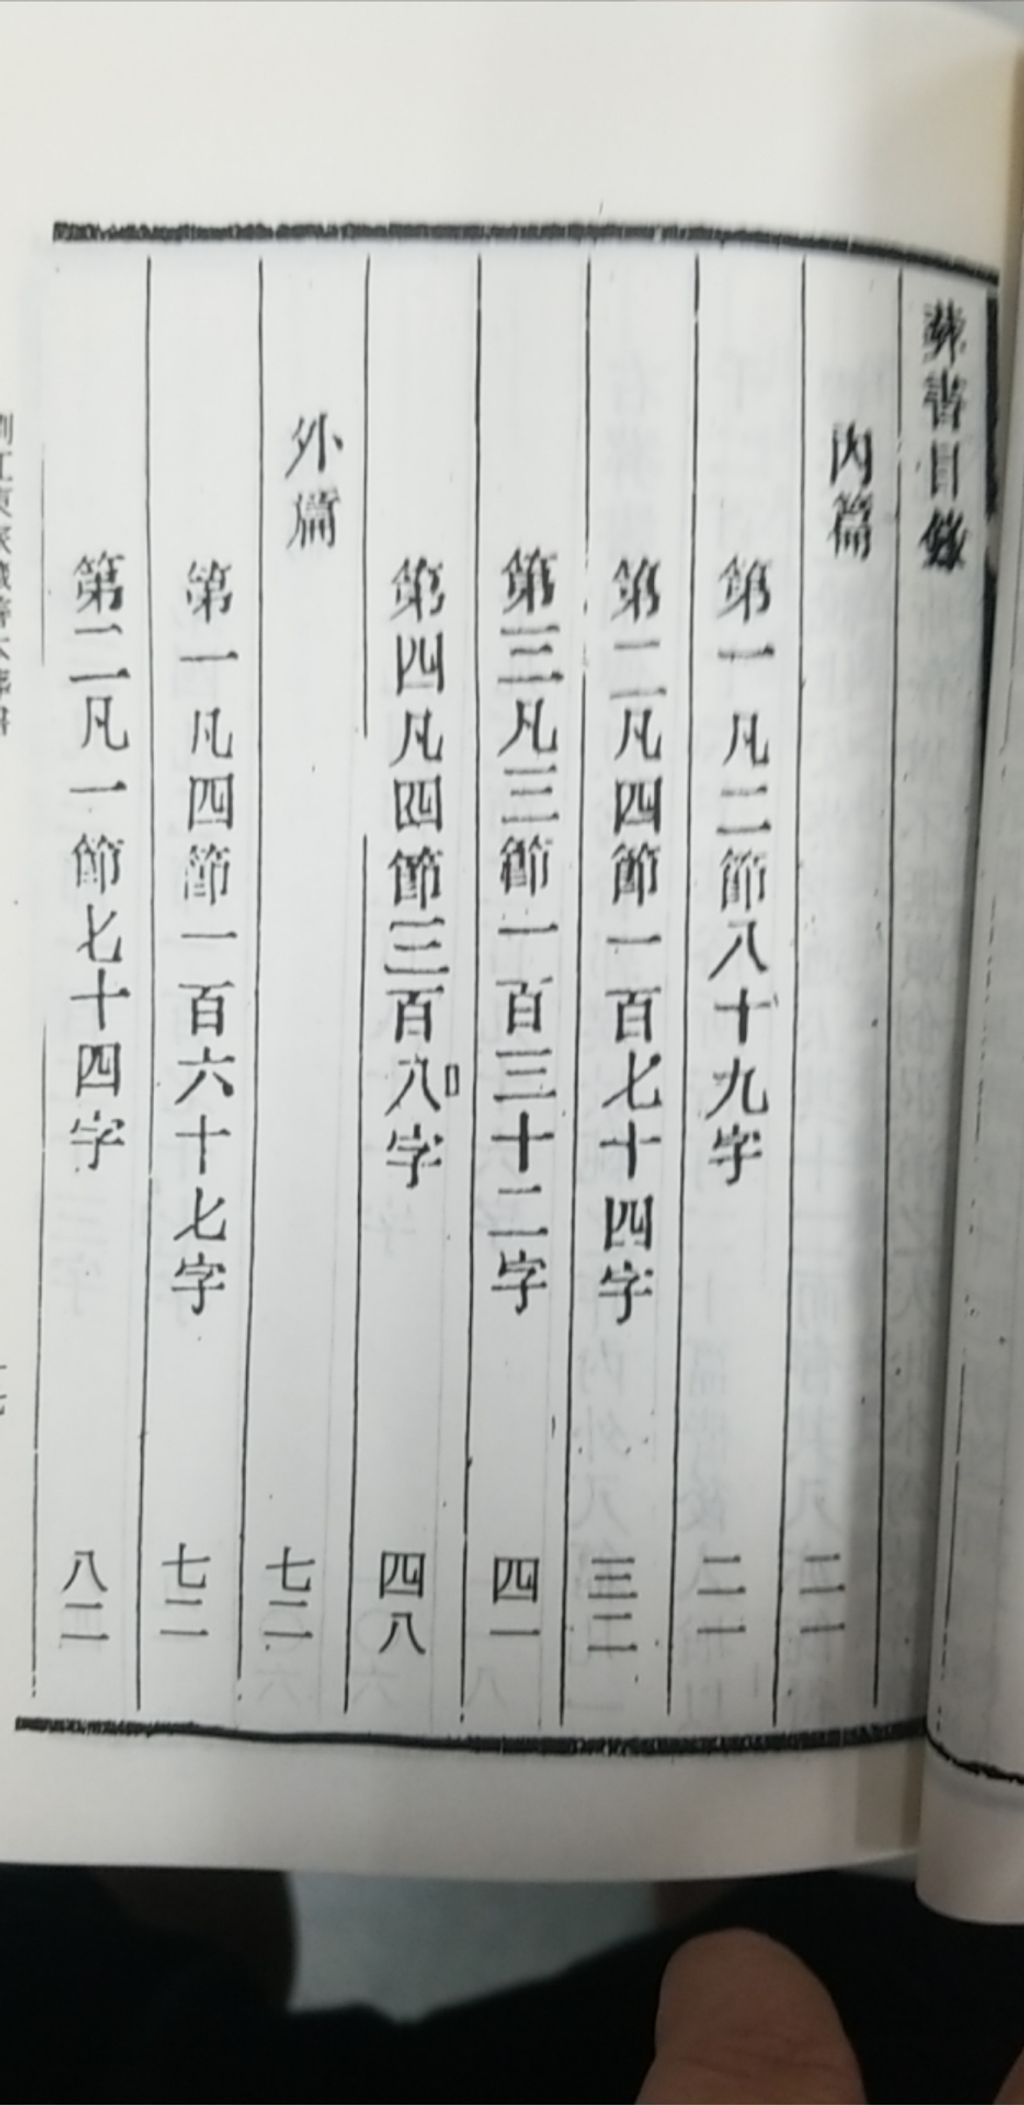 葬書目錄
內篇
二一
第一凡二節八十九字
二一
第二凡四節一百七十四字
三二
第三凡三節一百三十二字
四一
第四凡四節三百八字
四八
外篇
七二
第一凡四節一百六十七字
七二
第二凡一節七十四字
八二